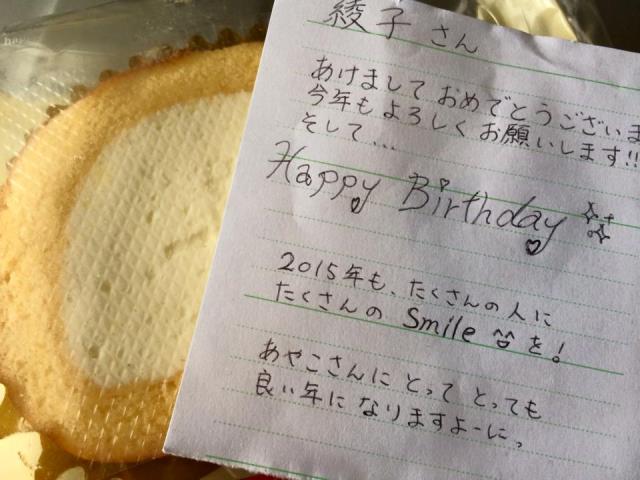 綾子さん
あけましておめでとうございま
今年もよろしくお願いします!!
そして...
Happy Birthday
2015年も、たくさんの人に
たくさんの Smile を!
あやこさんにとってとっても
良い年になりますよーにっ